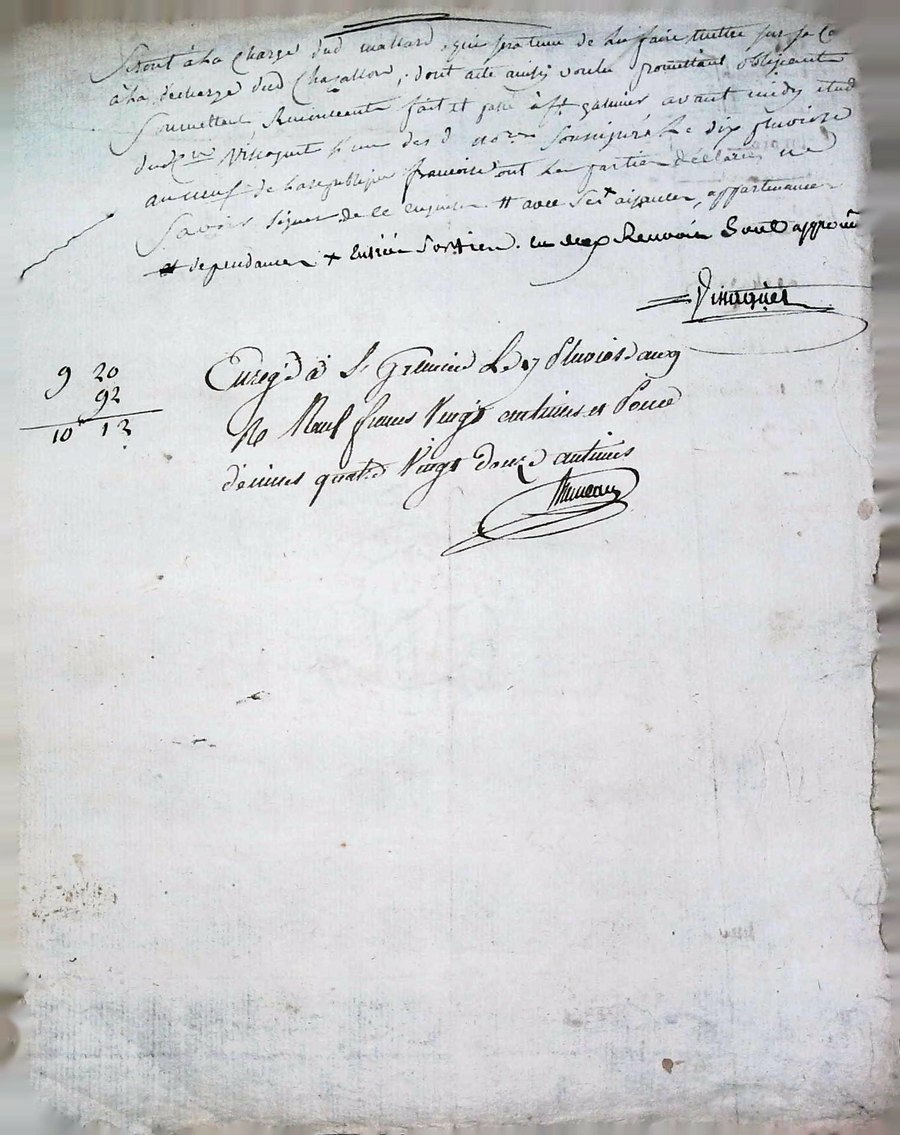 Seront à la charge dud mallard, qui sera tenu de les faire mettre sur sa Co
à la décharge dud Chazallon, dont acte ainsy voulu promettant obligeant
Soumettant Renonceant fait et passé à St galmier avant midy étude
Vinoguet l'un des d nores Soussignés Le dix pluviose
an neuf de la republique francoise ont les parties déclarés ne
Savoir signer de ce enquises # avec ses + aisances, appartenances
et dependances + Entrées Sorties. les deux Renvois Sont approuvés
Vinoguet
Enregé à St Grenier Le 17 Pluviose an 9
R Neuf francs Vingt centimes et Pour
décimes quatre Vingt douze centimes
9 20
92
10 12